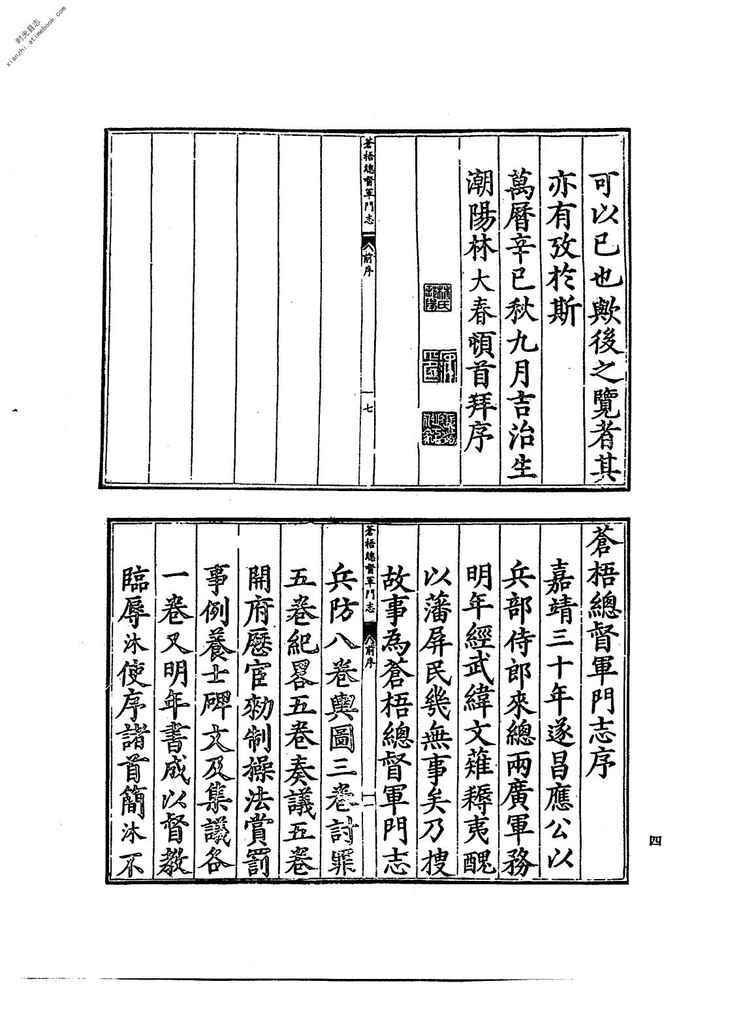 时光县志
xianzhi.atimebook.com
可以已也歟後之覽者其
亦有攷於斯
萬曆辛巳秋九月吉治生
潮陽林大春頓首拜序
蒼梧總督軍門志
前序
七
蒼梧總督軍門志序
嘉靖三十年遂昌應公以
兵部侍郎來總兩廣軍務
明年經武緯文薙耨夷醜
以藩屏民幾無事矣乃搜
故事為蒼梧總督軍門志
蒼梧總督軍門志
前序
一
兵防八卷輿圖三卷討罪
五卷紀畧五卷奏議五卷
開府歷宦勑制操法賞罰
事例養士碑文及集議各
一卷又明年書成以督教
臨辱沐使序諸首簡沐不
四